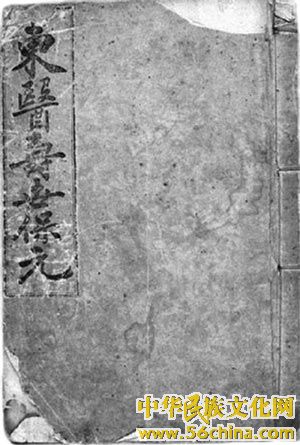 東醫壽世保元
中华民族文化网
www.56china.com